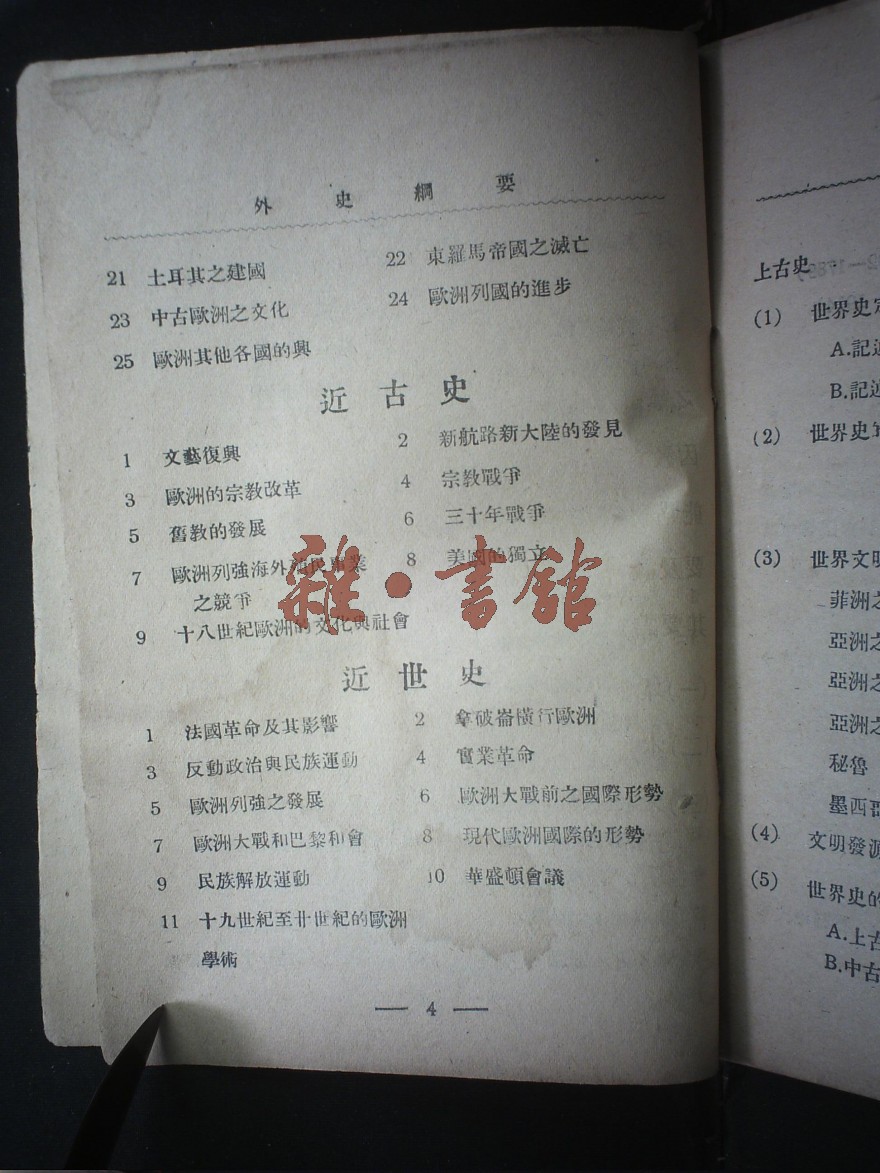 外史綱要
21 土耳其之建國 22 東羅馬帝國之滅亡
23 中古歐洲之文化 24 歐洲列國的進步
25 歐洲其他各國的興
近古史
1 文藝復興 2 新航路新大陸的發見
3 歐洲的宗教改革 4 宗教戰爭
5 舊教的發展 6 三十年戰爭
7 歐洲列強海外殖民事業 8 美國的獨立
之競爭
9 十八世紀歐洲的文化與社會
雜·書館
近世史
1 法國革命及其影響 2 拿破崙橫行歐洲
3 反動政治與民族運動 4 實業革命
5 歐洲列強之發展 6 歐洲大戰前之國際形勢
7 歐洲大戰和巴黎和會 8 現代歐洲國際的形勢
9 民族解放運動 10 華盛頓會議
11 十九世紀至廿世紀的歐洲
學術
— 4 —
上古史
(1) 世界史
A.記
B.記
(2) 世界史
(3) 世界文明
菲洲之
亞洲之
亞洲之
亞洲之
秘魯
墨西哥
(4) 文明發源
(5) 世界史的
A.上古
B.中古